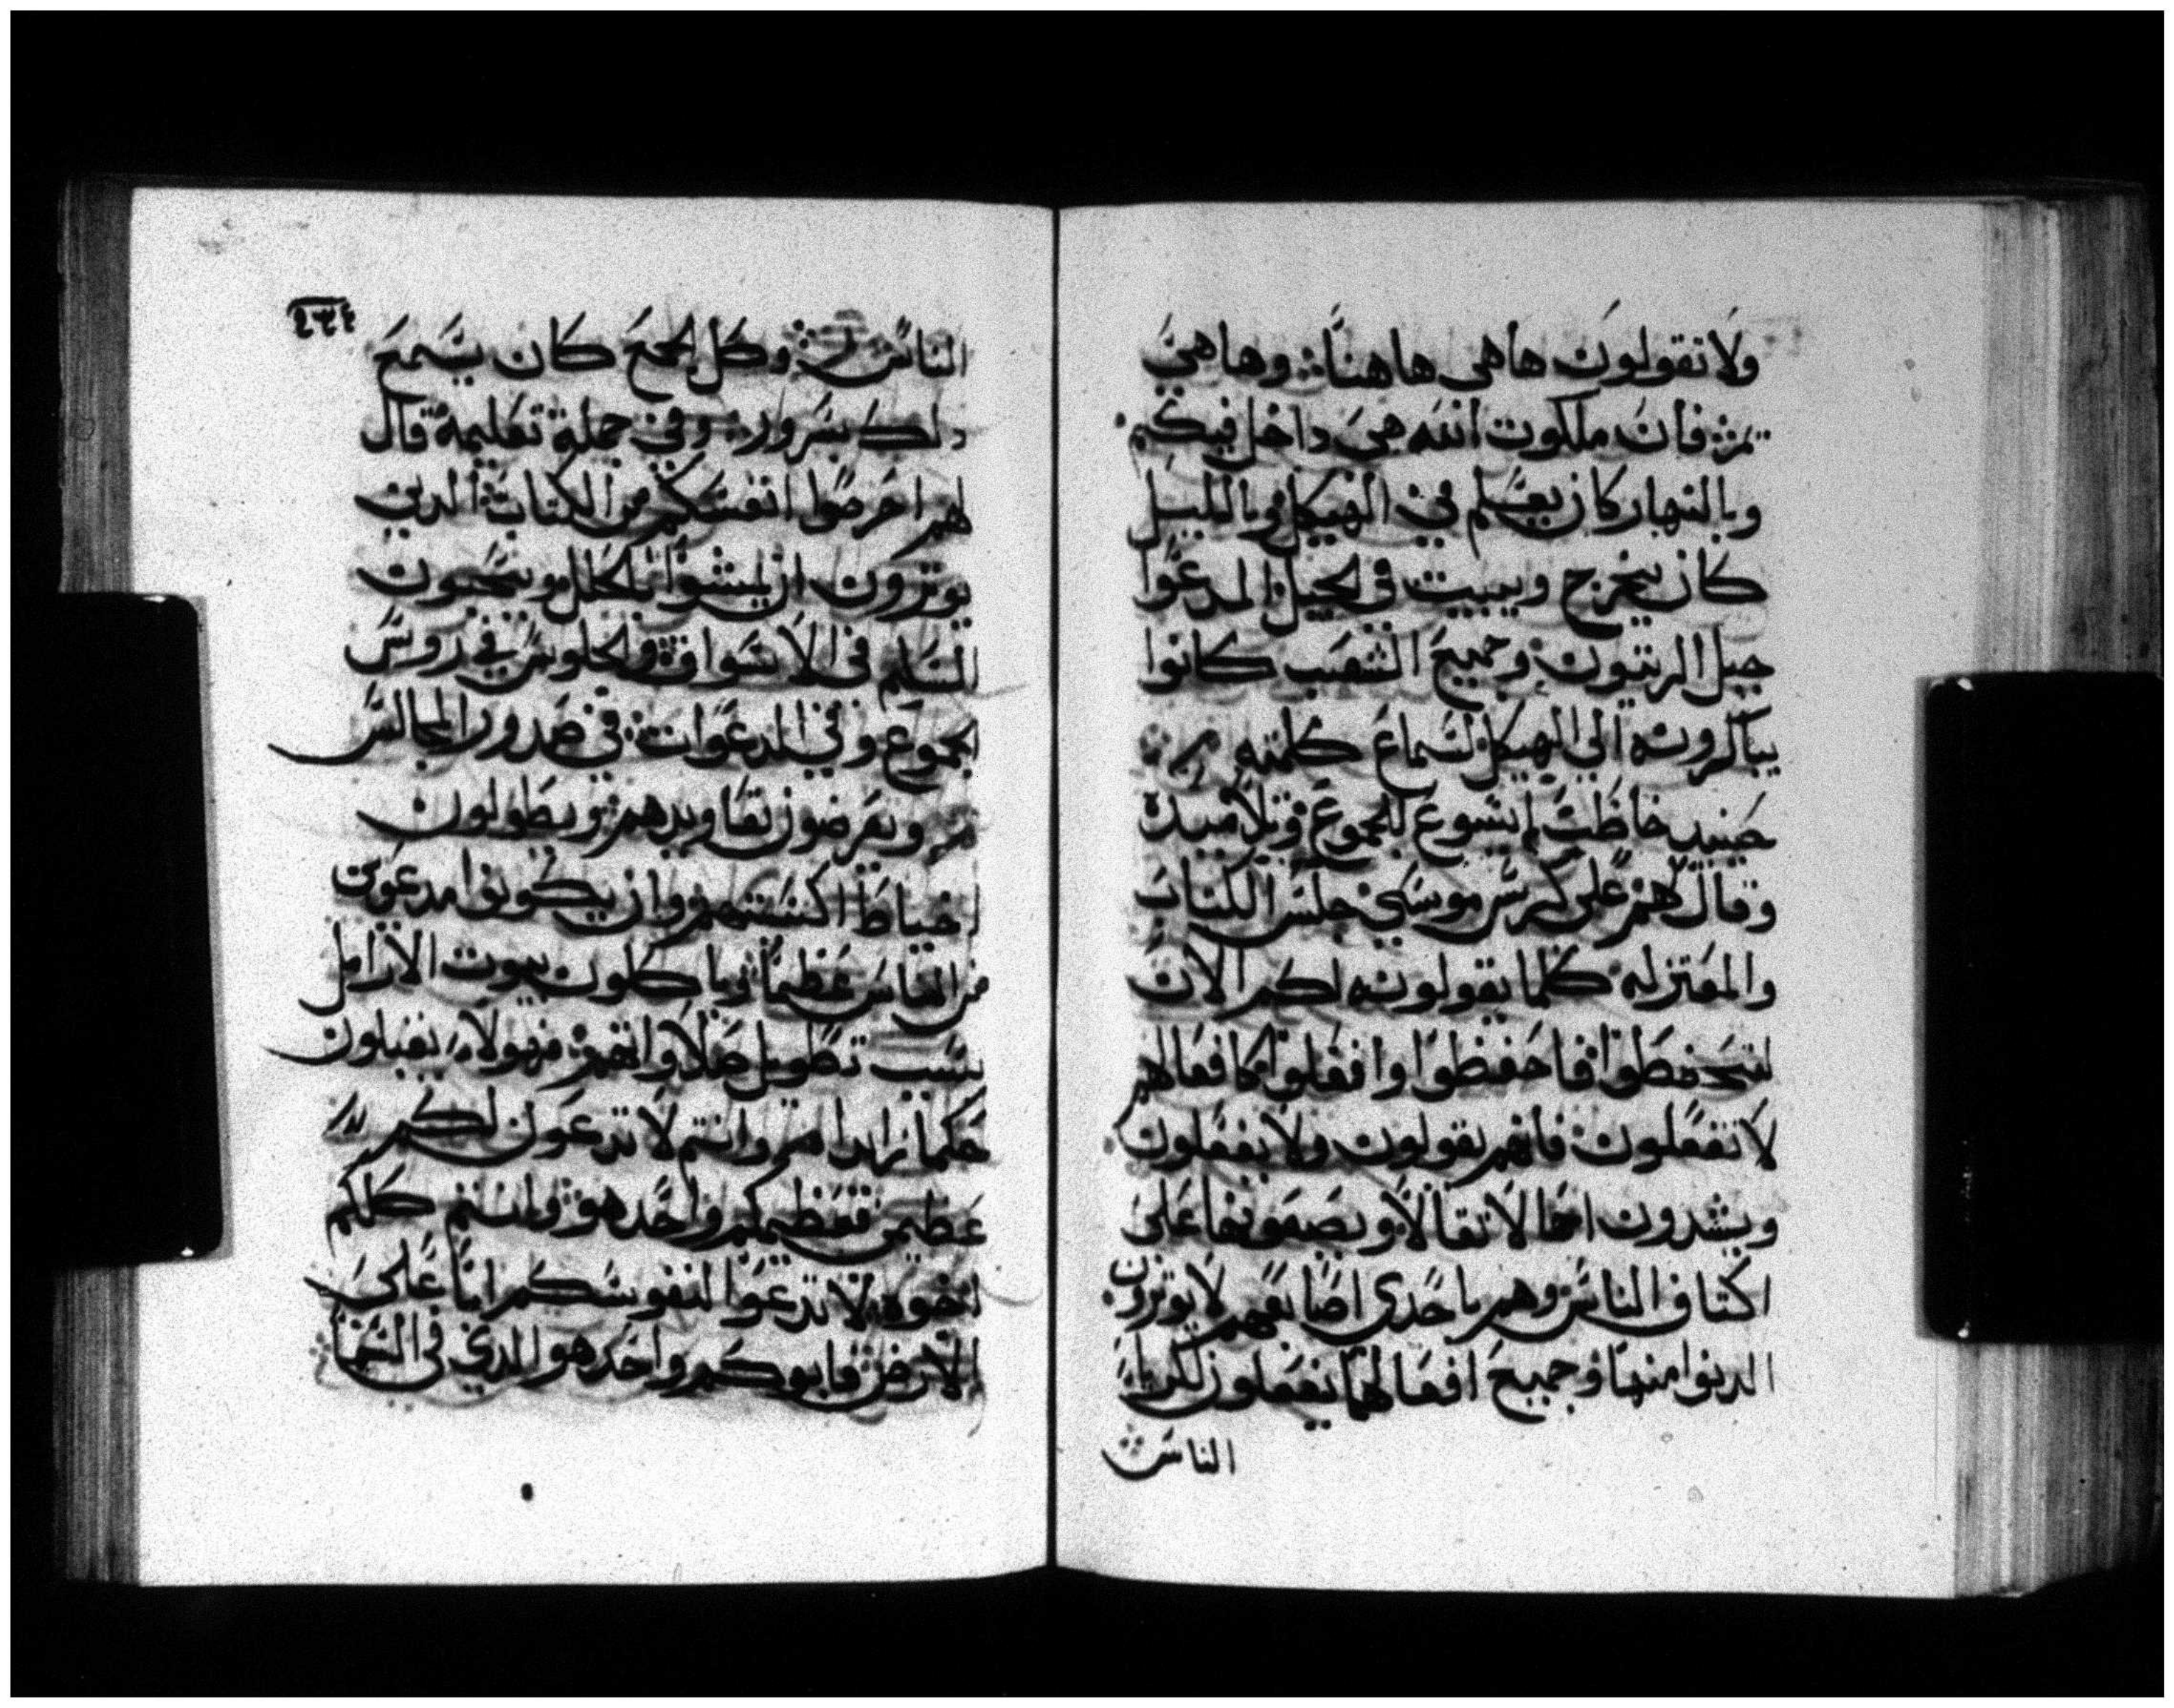 ولا نقولون هاهى هاهنا وهاهي
تم فان ملكوت الله هي داخل فيكم
وبالنهار كان يعلم في الهيكل وبالليل
كان يخرج ويبيت في الجبل المدعوا
جبل الزيتون وجميع الشعب كانوا
يباكرونه الي الهيكل لسماع كلمته
حينيد خاطب يسوع الجموع وتلاميده
وقال لهم على كرسي موسي جلس الكتاب
والمعتزله كلما يقولونه لكم الان
لتحفطوا فاحفظوا وافعلوا كافعالهم
لا تفعلون فانهم يقولون ولا يفعلون
ويشدون احمالا تقالا ويضعونها على
اكتاف الناس وهم باحدي اصابعهم لا يوترون
الدنوا منها وجميع افعالهم يفعلون لكي
الناس
الناس وكل الجمع كان يسمع
دلك بسرور وفي جملة تعليمه قال
لهم احرصوا انفسكم من الكتاب الدين
يوترون ان يمشوا بالحلل ويحبون
السلم في الاسواق والجلوس في روس
الجموع وفي الدعوات في صدور المجالس
ويعرضون تعاويدهم ويطولون
خياط اكسيتهم وان يكونوا مدعوين
من الناس عظيما وياكلون بيوت الارامل
بسبب تطويل صلاواتهم فهولاء يقبلون
حكما زايدا وانتم لا تدعون لكم
عظيمن فعظيمكم واحد هو وانتم كلكم
اخوه لا تدعوا لنفوسكم ابا على
الارض فابوكم واحد هو الدي في السما